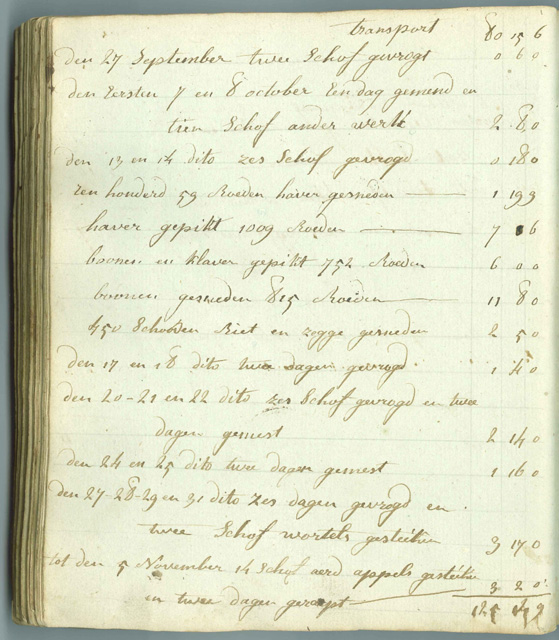 transport 80 15 6
den 27 September twee Schof gevrogt 0 6 0
den Eersten 7 en 8 october Een dag gemend en
tien Schof ander werk 2 8 0
den 13 en 14 dito zes Schof gevrogd 0 18 0
een honderd 59 Roeden haver gesneden 1 19 9
haver gepikt 1009 Roeden 7 6
boonen en klaver gepikt 752 Roeden 6 0 0
boonen gesneden 815 Roeden 11 8 0
450 Schoben Riet en zegge gesneden 2 5 0
den 17 en 18 dito twee dagen gevrogd 1 4 0
den 20-21 en 22 dito zes Schof gevrogd en twe
dagen gemest 2 14 0
den 24 en 25 dito twe dagen gemest 1 16 0
den 27-28-29 en 31 dito zes dagen gevrogd en
twee Schof wortels 3 17 0
tot den 5 November 14 Schof aerd appels
en twee dagen 3 2 0
125